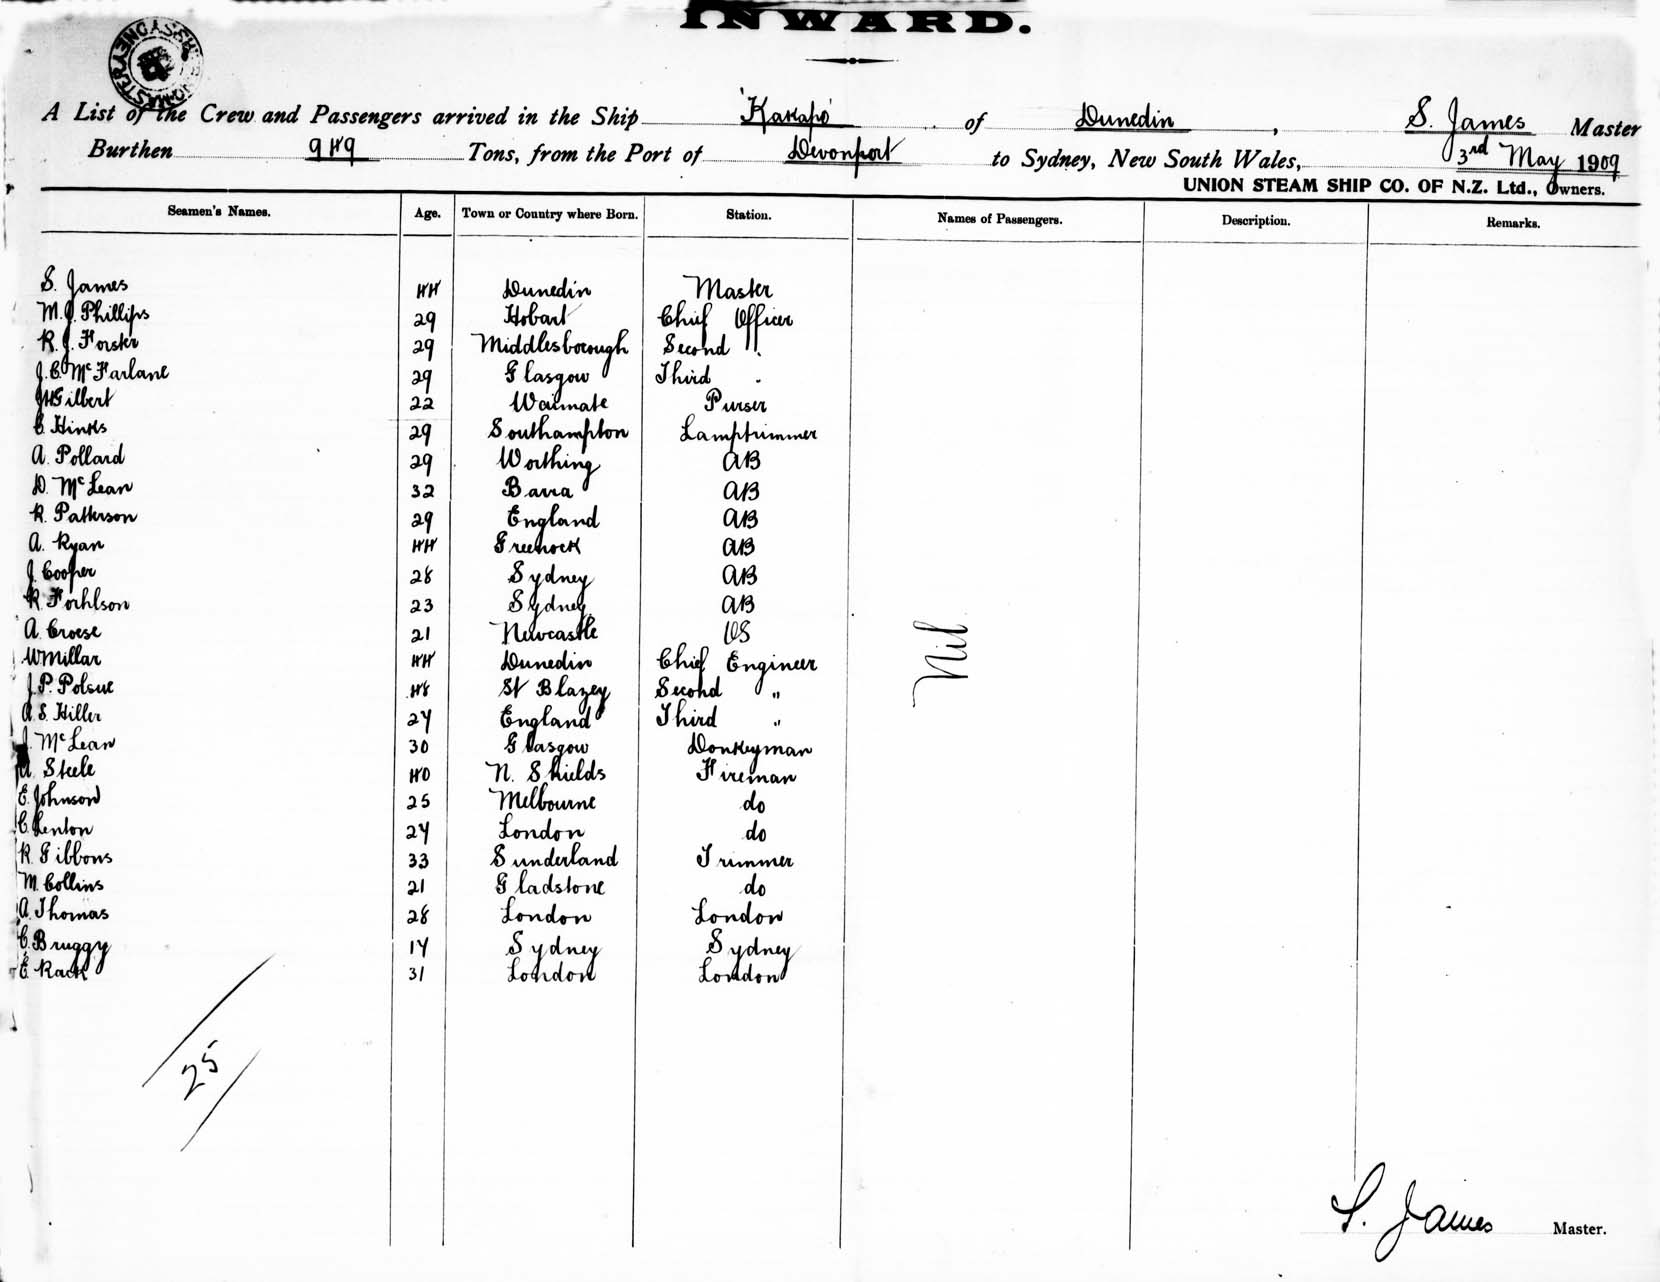 INWARD.
A List of the Crew and Passengers arrived in the Ship 'Kakapo' of Dunedin, S. James Master
Burthen 949 Tons, from the Port of Devonport to Sydney, New South Wales, 3rd May 1909
UNION STEAM SHIP CO. OF N.Z. Ltd., Owners.
Seamen's Names. Age. Town or Country where Born. Station. Names of Passengers. Description. Remarks.
S. James 44 Dunedin Master
M. J. Phillips 29 Hobart Chief Officer
R. J. Forster 29 Middlesborough Second "
J. C. McFarlane 29 Glasgow Third "
J H Gilbert 22 Waimate Purser
C. Hinks 29 Southampton Lamptrimmer
A. Pollard 29 Worthing AB
D. McLean 32 Barra AB
R. Patterson 29 England AB
A. Ryan 44 Greenock AB
J. Cooper 28 Sydney AB
R. 23 Sydney AB
A. Croese 21 Newcastle OS
W Millar 44 Dunedin Chief Engineer
J. P. Polsue 48 St Blazey Second "
A. S. Hiller 24 England Third "
J. McLean 30 Glasgow Donkeyman
A. Steele 40 N. Shields Fireman
E. Johnson 25 Melbourne do
C. Lenton 24 London do
R. Gibbons 33 Sunderland Trimmer
M. Collins 21 Gladstone do
A. Thomas 28 London London
C. Bruggy 14 Sydney Sydney
E. Rack 31 London London
Nil
25
S. James Master.